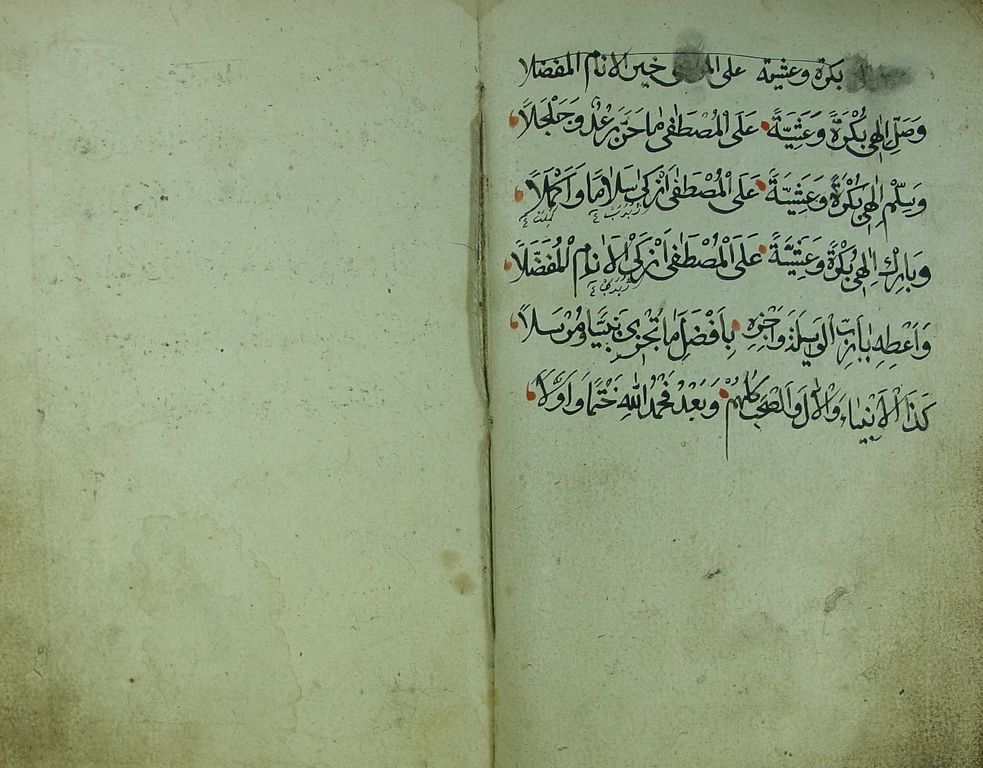 بكرة وعشية على خير الانام المفضلا
وَصَلِّ اِلٰهِي بُكْرَةً وَعَشِيَّةً عَلَى الْمُصْطَفٰى مَا حَنَّ رَعْدٌ وَجَلْجَلَا
وَسَلِّمْ اِلٰهِي بُكْرَةً وَعَشِيَّةً عَلَى الْمُصْطَفٰى اَزْكٰى سَلَامًا وَاَكْمَلَا
وَبَارِكْ اِلٰهِي بُكْرَةً وَعَشِيَّةً عَلَى الْمُصْطَفٰى اَزْكَى الْاَنَامِ الْمُفَضَّلَا
وَاَعْطِهِ يَا رَبِّ الْوَسِيلَةَ وَاجْزِهِ بِاَفْضَلِ مَا تَجْزِي نَبِيًّا وَمُرْسَلًا
كَذَا الْاَنْبِيَاءِ وَالْاٰلِ وَالصَّحْبِ كُلِّهِمْ وَبَعْدُ فَحَمْدُ اللّٰهِ خَتْمًا وَاَوَّلًا